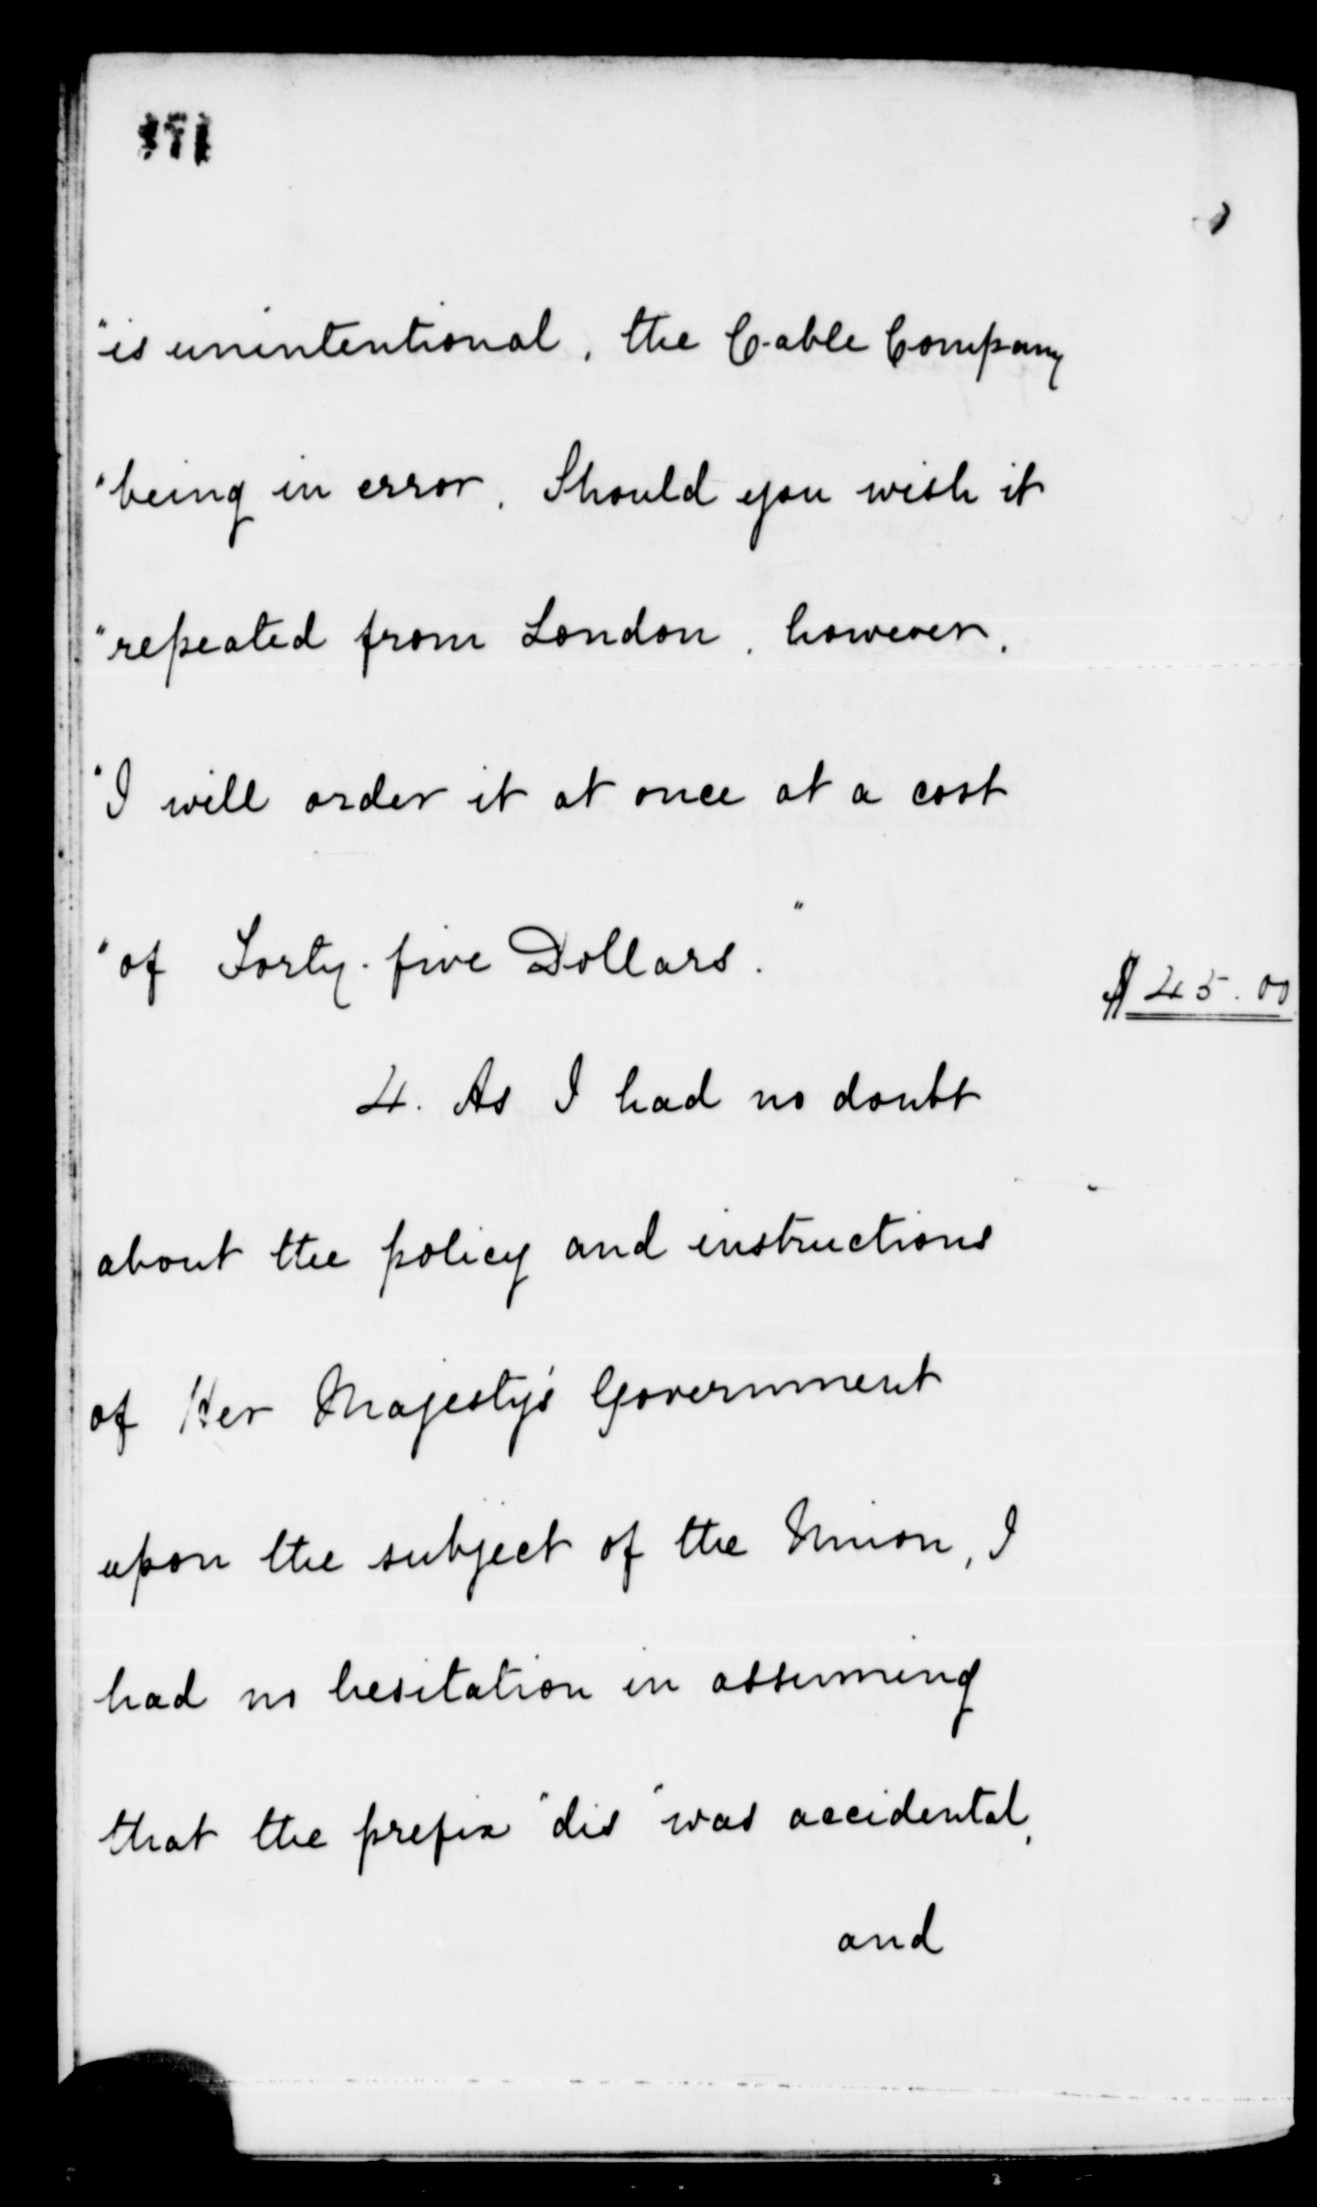 "is unintentional, the Cable Company
"being in error. Should you wish it
"repeated from London, however,
"I will order it at once at a cost
"of Forty-five Dollars."
$45.00
4. As I had no doubt
about the policy and instructions
of Her Majesty's Government
upon the subject of the Union, I
had no hesitation in assuming
that the prefix "dis" was accidental,
and